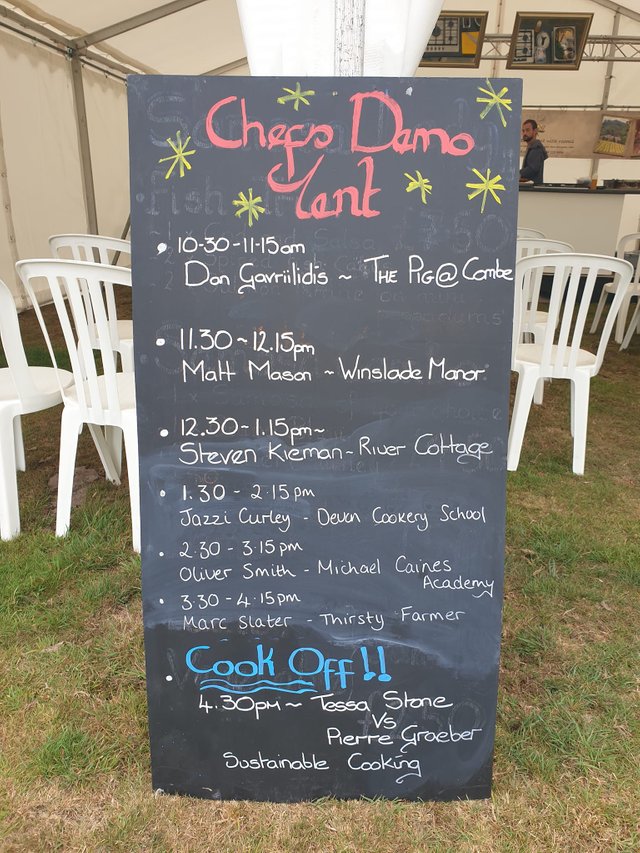 Chefs Demo
Tent
• 10-30-11-15am
Dan Gavriilidis ~ THE PIG@Combe
• 11.30 ~ 12.15pm
Matt Mason ~ Winslade Manor
• 12.30-1.15pm~
Steven Kiernan ~ River Cottage
• 1.30 - 2.15pm
Jazzi Curley - Devon Cookery School
• 2.30 - 3.15pm
Oliver Smith - Michael Caines
Academy
• 3.30 - 4.15pm
Marc Slater - Thirsty Farmer
• Cook Off!!
4.30pm ~ Tessa Stone
Vs
Pierre Graeber
Sustainable Cooking